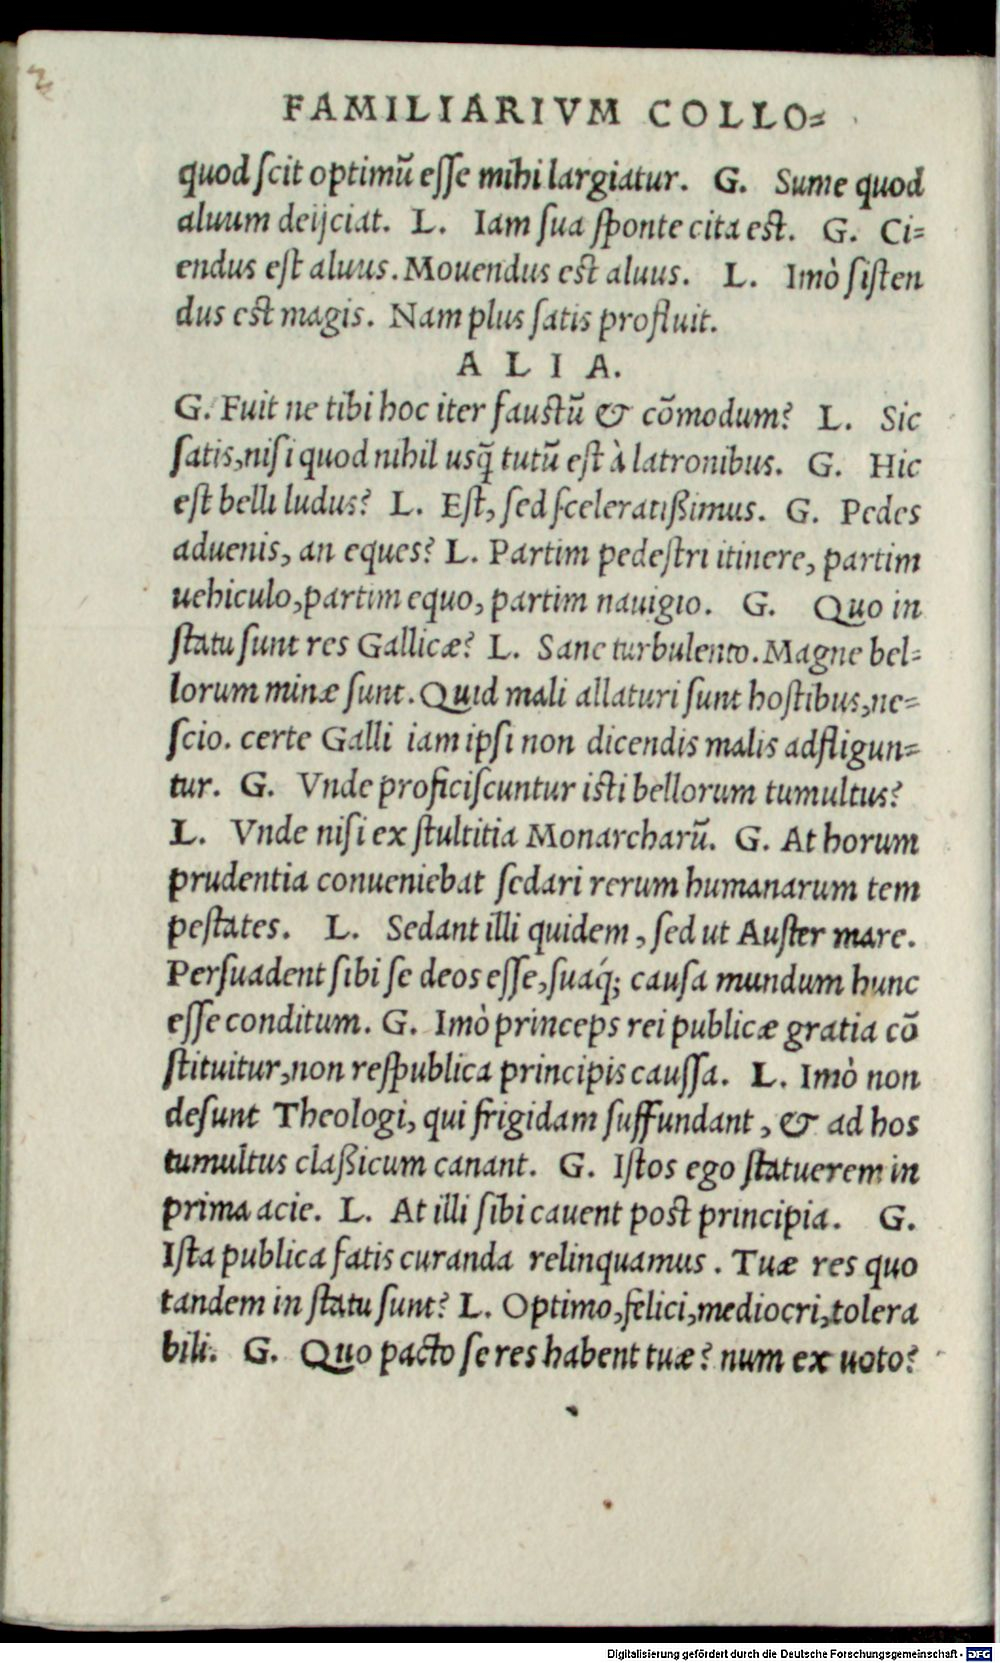 FAMILIARIVM COLLO=
quod ſcit optimū eſſe mihi largiatur. G. Sume quod
aluum deijciat. L. Iam ſua ſponte cita eſt. G. Ci=
endus eſt aluus. Mouendus eſt aluus. L. Imò ſiſten
dus eſt magis. Nam plus ſatis profluit.
ALIA.
G. Fuit ne tibi hoc iter fauſtū & cōmodum? L. Sic
ſatis, niſi quod nihil usq̃ tutū eſt à latronibus. G. Hic
eſt belli ludus? L. Eſt, ſed ſceleratißimus. G. Pedes
aduenis, an eques? L. Partim pedeſtri itinere, partim
uehiculo, partim equo, partim nauigio. G. Quo in
ſtatu ſunt res Gallicæ? L. Sane turbulento. Magne bel=
lorum minæ ſunt. Quid mali allaturi ſunt hoſtibus, ne=
ſcio. certe Galli iam ipſi non dicendis malis adfligun=
tur. G. Vnde proficiſcuntur iſti bellorum tumultus?
L. Vnde niſi ex ſtultitia Monarcharū. G. At horum
prudentia conueniebat ſedari rerum humanarum tem
peſtates. L. Sedant illi quidem, ſed ut Auſter mare.
Perſuadent ſibi ſe deos eſſe, ſuaq́; cauſa mundum hunc
eſſe conditum. G. Imò princeps rei publicæ gratia cō
ſtituitur, non reſpublica principis cauſſa. L. Imò non
deſunt Theologi, qui frigidam ſuffundant, & ad hos
tumultus claßicum canant. G. Iſtos ego ſtatuerem in
prima acie. L. At illi ſibi cauent poſt principia. G.
Iſta publica fatis curanda relinquamus. Tuæ res quo
tandem in ſtatu ſunt? L. Optimo, felici, mediocri, tolera
bili. G. Quo pacto ſe res habent tuæ? num ex uoto?
Digitalisierung gefördert durch die Deutsche Forschungsgemeinschaft - DFG